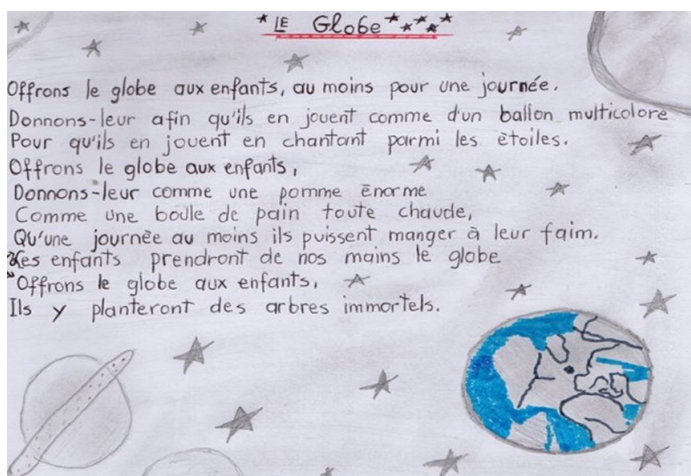 LE Globe
Offrons le globe aux enfants, au moins pour une journée.
Donnons-leur afin qu'ils en jouent comme d'un ballon multicolore
Pour qu'ils en jouent en chantant parmi les étoiles.
Offrons le globe aux enfants,
Donnons-leur comme une pomme énorme
Comme une boule de pain toute chaude,
Qu'une journée au moins ils puissent manger à leur faim.
Les enfants prendront de nos mains le globe
Offrons le globe aux enfants,
Ils y planteront des arbres immortels.